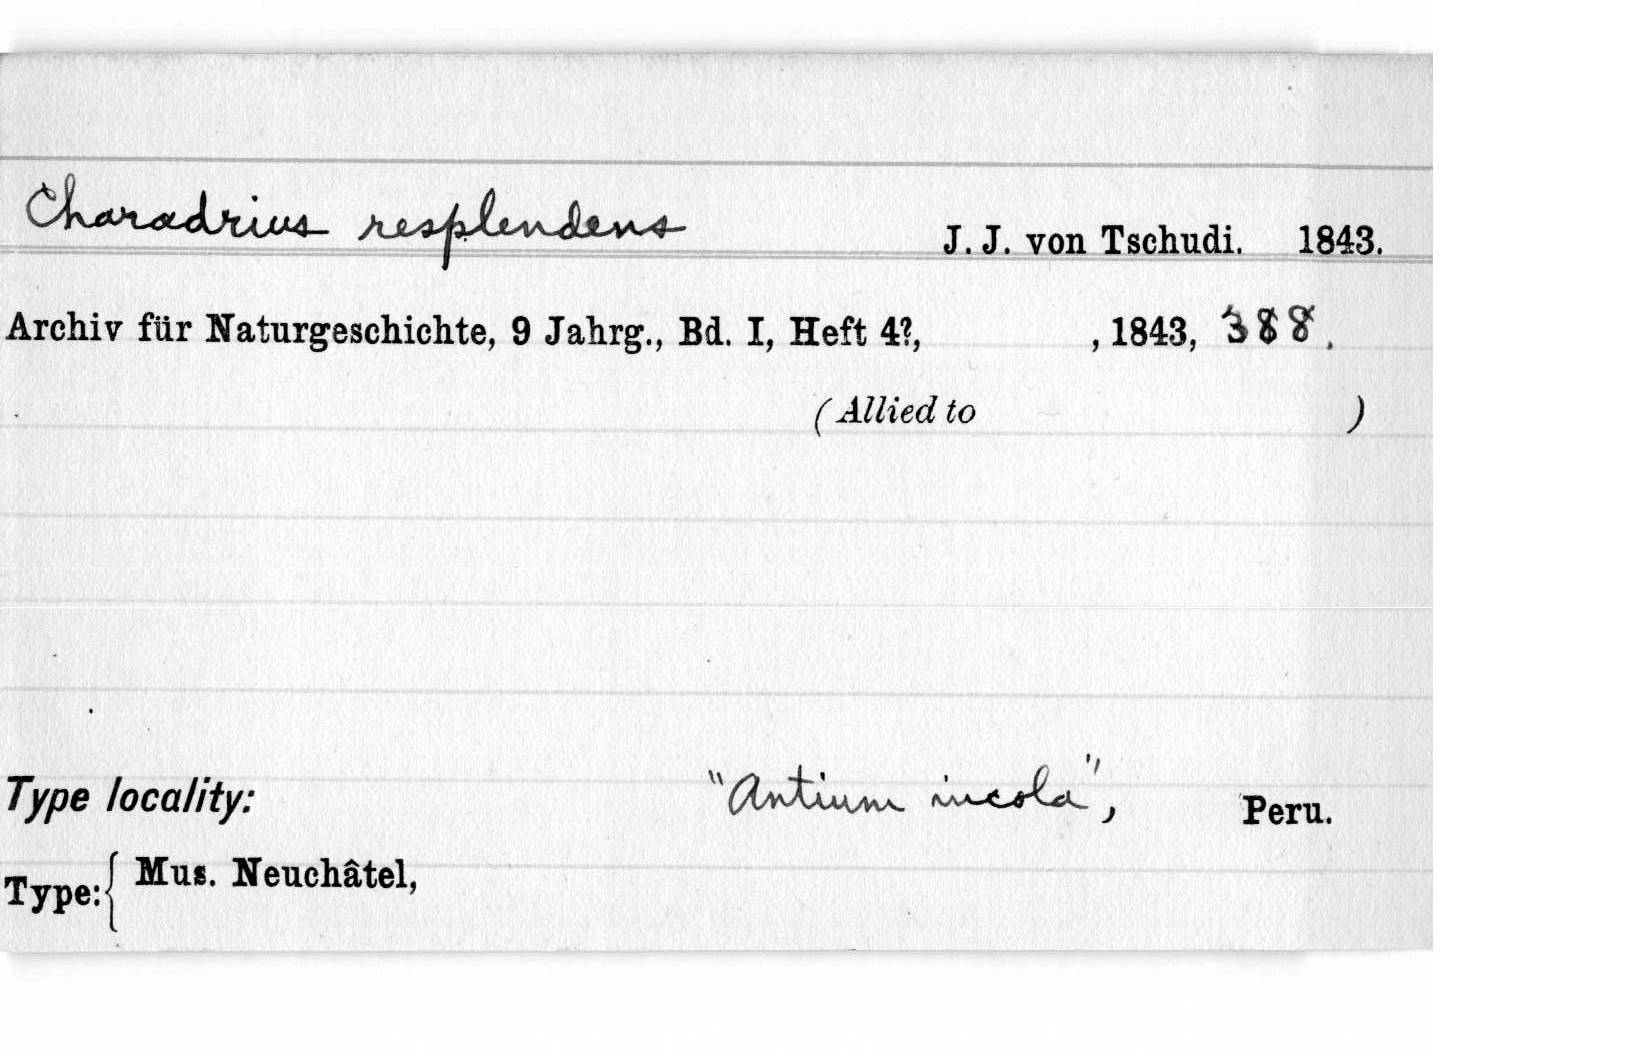 Charadrius resplendens J. J. von Tschudi. 1843.
Archiv für Naturgeschichte, 9 Jahrg., Bd. I, Heft 4?, , 1843, 388.
(Allied to )
Type locality: "Antium incola", Peru.
Type: { Mus. Neuchâtel,